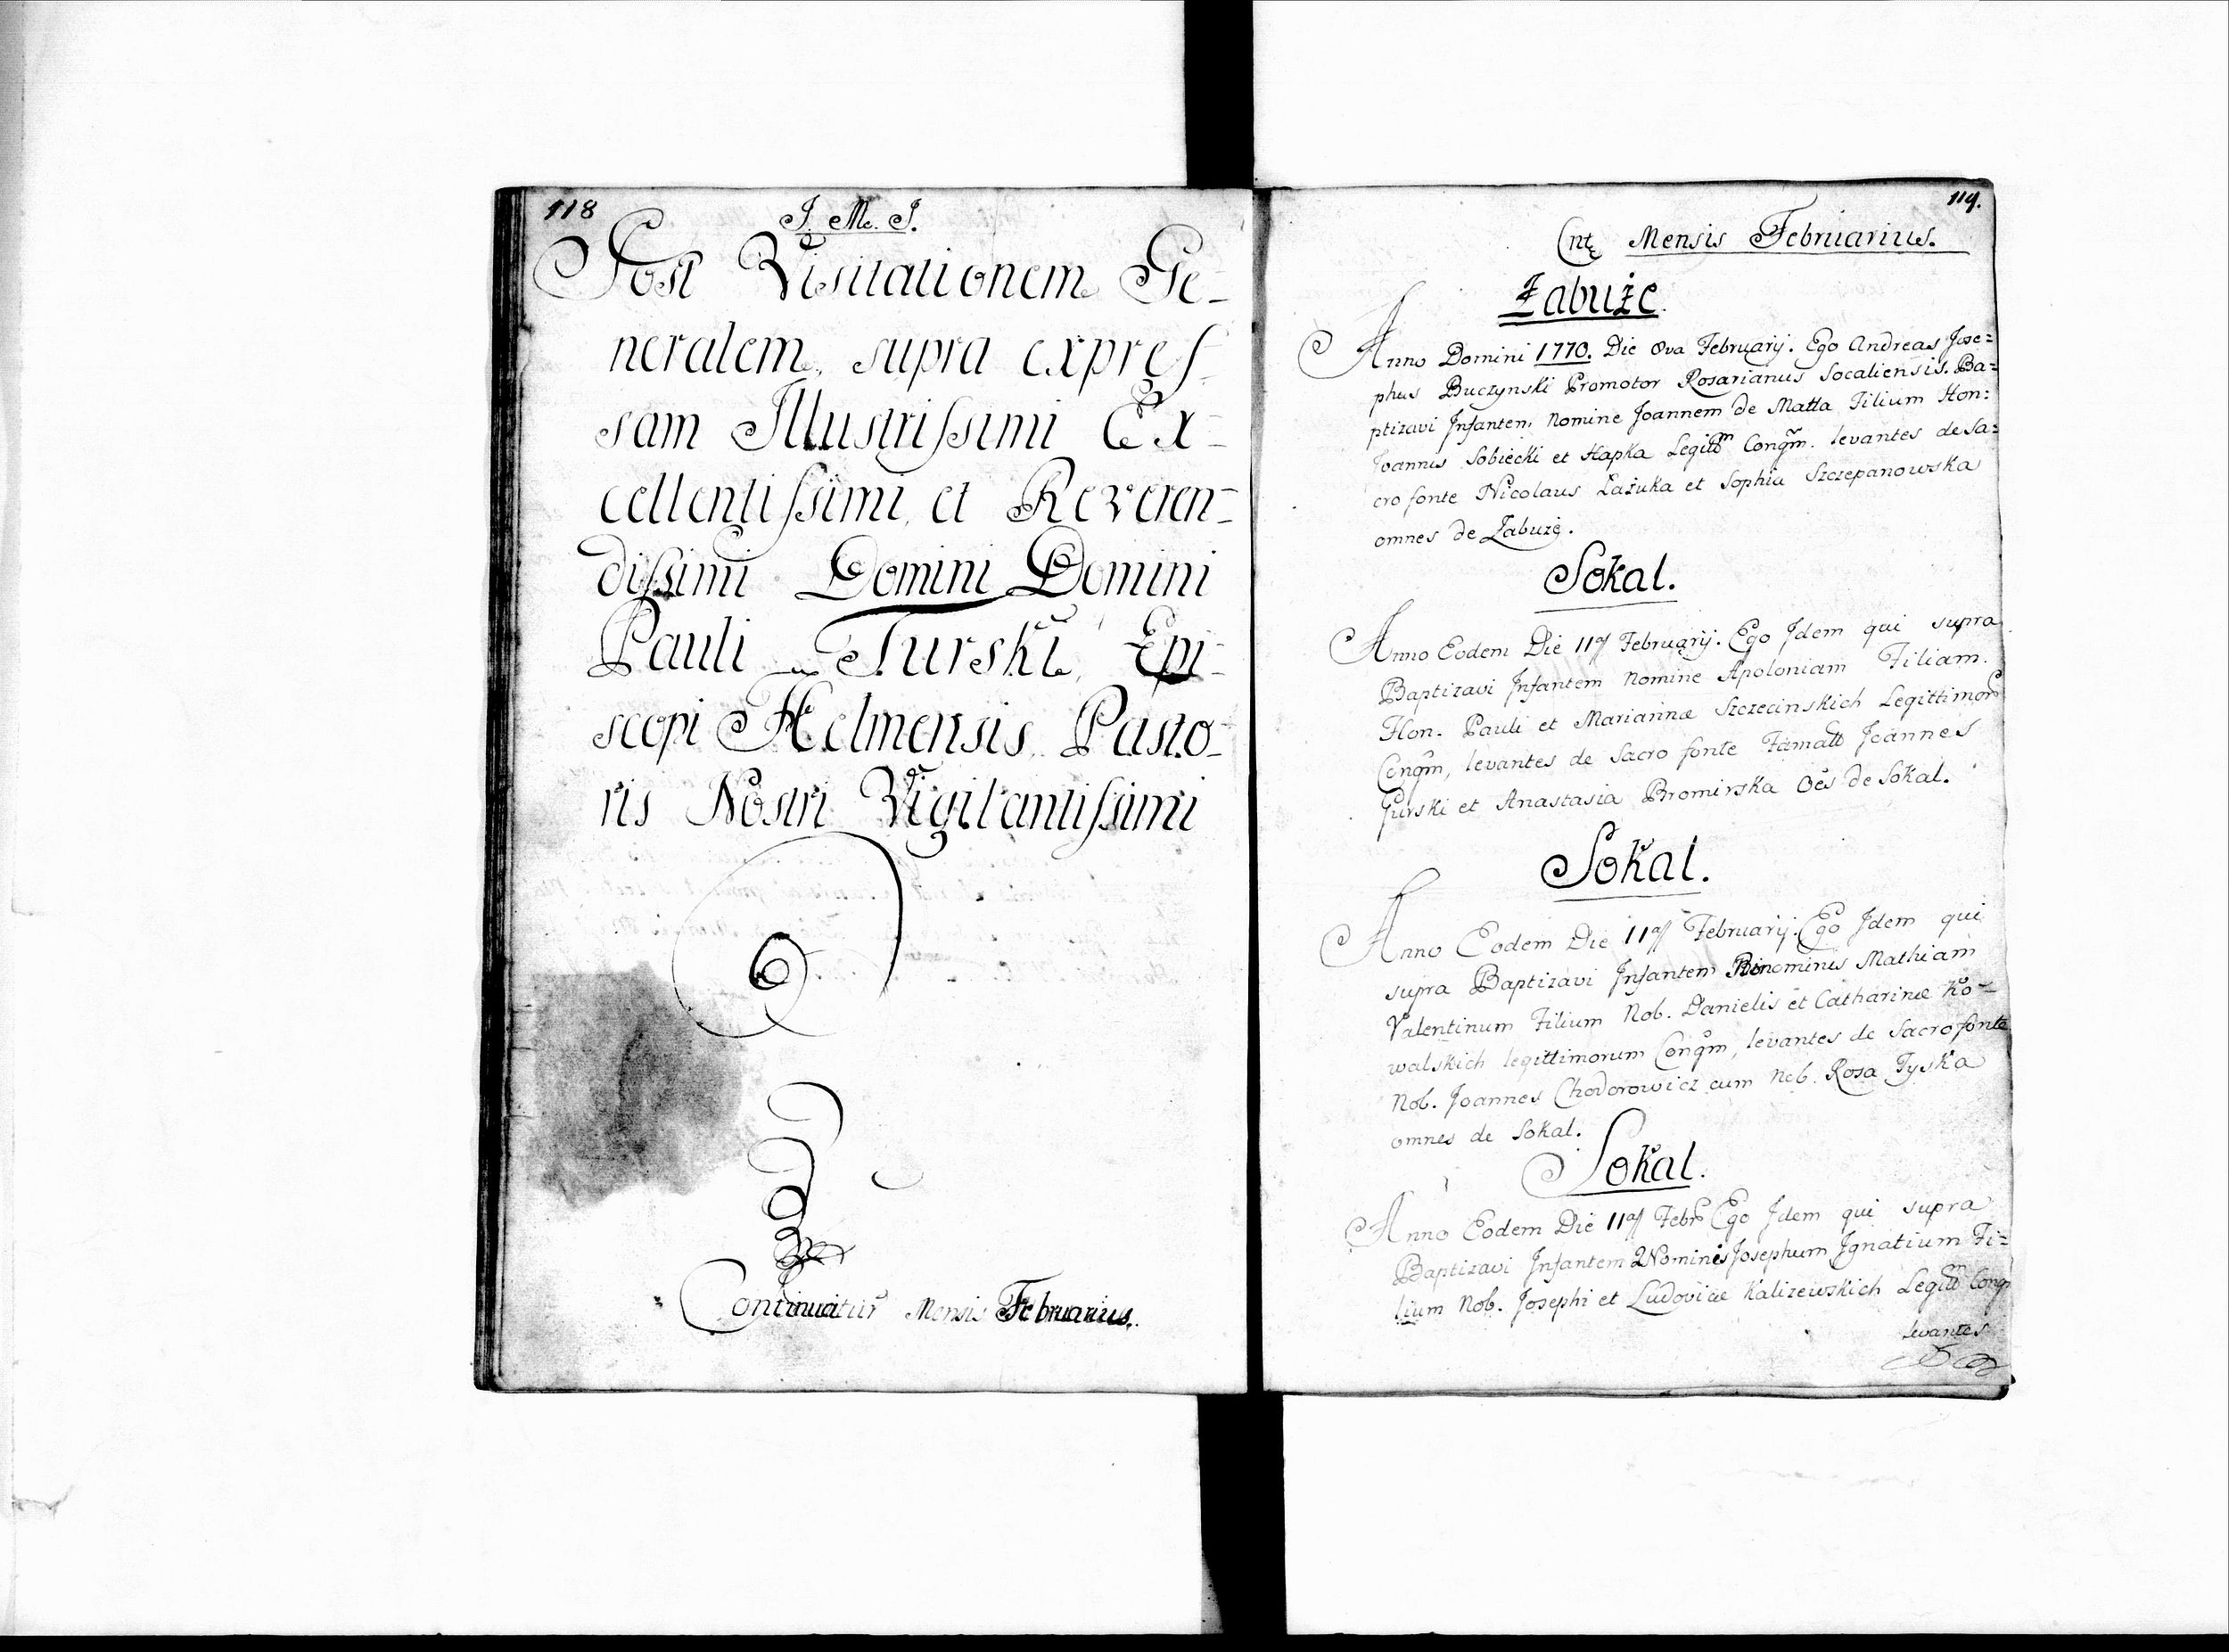 118
J. M. J.
Post Visitationem Ge-
neralem, supra expres-
sam Illustrissimi Ex-
cellentissimi, et Reveren-
dissimi Domini Domini
Pauli Turski, Epi-
scopi Helmensis, Pasto-
ris Nostri Vigilantissimi
Continuatur Mensis Februarius.
119.
Cnt Mensis Februarius.
Zabuże.
Anno Domini 1770. Die 8va Februarij. Ego Andreas Jose=
phus Buczynski Promotor Rosarianus Socaliensis. Ba=
ptizavi Infantem Nomine Joannem de Matta Filium Hon:
Joannis Sobiecki et Hapka Legitt Congm. levantes de Sa=
cro fonte Nicolaus Łażuka et Sophia Szczepanowska
omnes de Zabuże.
Sokal.
Anno Eodem Die 11a Februarij. Ego Idem qui supra
Baptizavi Infantem Nomine Apoloniam Filiam
Hon. Pauli et Mariannæ Szczecinskich Legittimor
Congm, levantes de Sacro fonte Famatt Joannes
Gurski et Anastasia Bromirska Oēs de Sokal.
Sokal.
Anno Eodem Die 11a Februarij. Ego Idem qui
supra Baptizavi Infantem Binominis Mathiam
Valentinum Filium Nob. Danielis et Catharinæ Ko-
walskich legittimorum Congm, levantes de Sacro fonte
Nob. Joannes Chodorowicz cum Nob. Rosa Tyska
omnes de Sokal.
Sokal.
Anno Eodem Die 11a Febr Ego Idem qui supra
Baptizavi Infantem 2Nominis Josephum Ignatium Fi=
lium Nob. Josephi et Ludovicæ Kalizewskich Legitt Cong
levantes